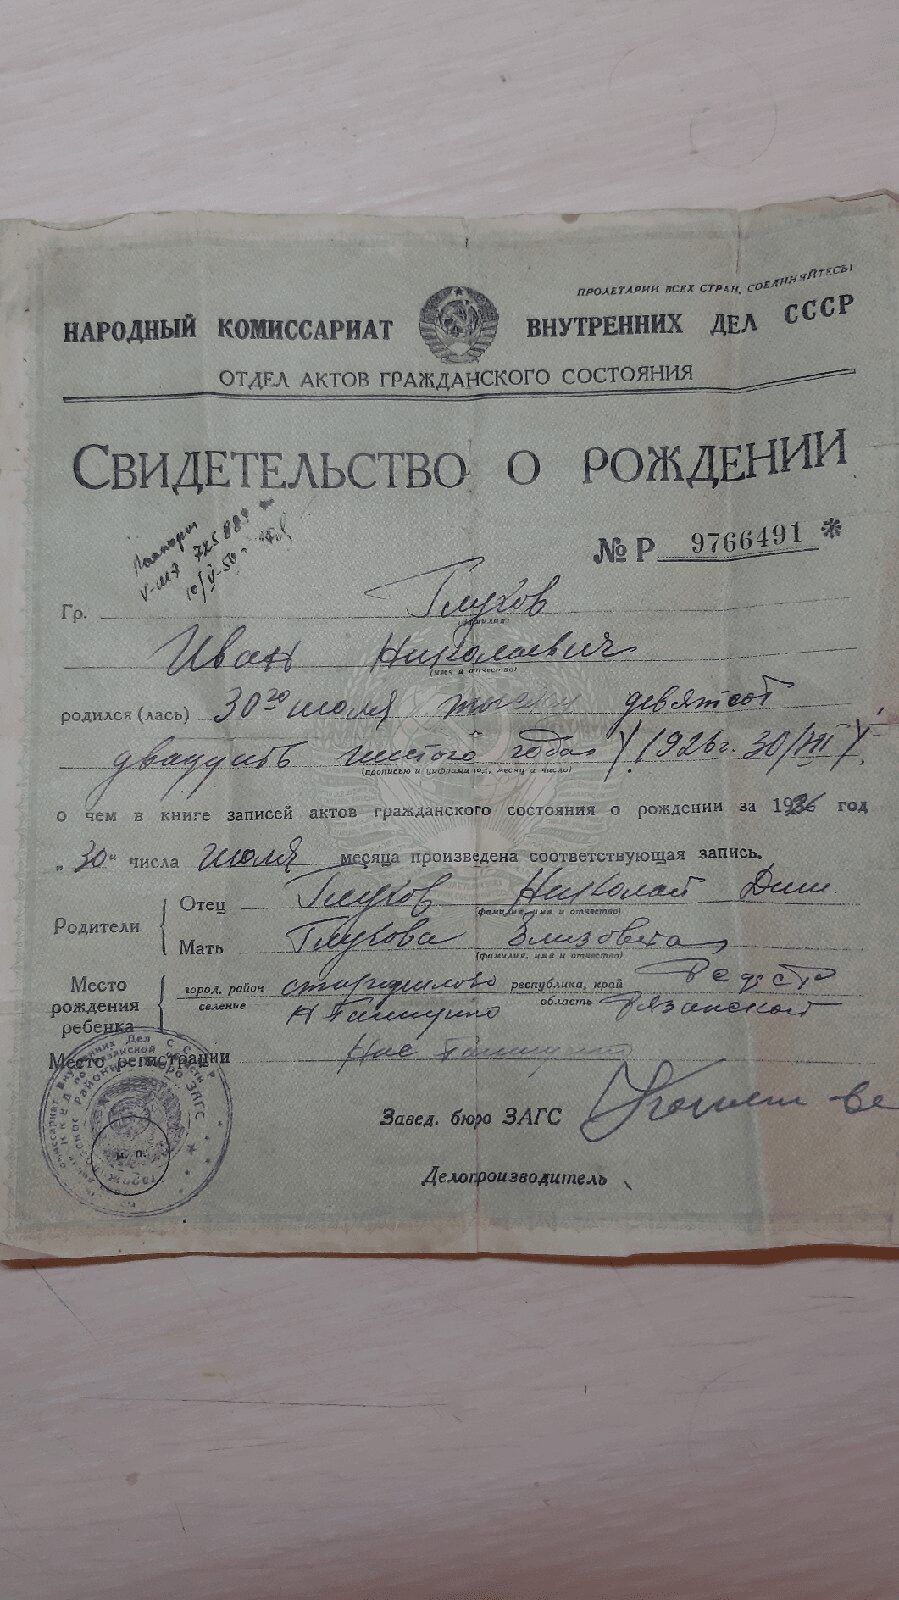 ПРОЛЕТАРИИ ВСЕХ СТРАН, СОЕДИНЯЙТЕСЬ!
НАРОДНЫЙ КОМИССАРИАТ ВНУТРЕННИХ ДЕЛ СССР
ОТДЕЛ АКТОВ ГРАЖДАНСКОГО СОСТОЯНИЯ
СВИДЕТЕЛЬСТВО О РОЖДЕНИИ
№ Р 9766491 *
Гр. Глухов
(фамилия)
Иван Николаевич
(имя и отчество)
родился (лась) 30го июля тысяч девятсот
двадцать шестого года 1926 г. 30/VII
(прописью и цифрами год, месяц и число)
о чем в книге записей актов гражданского состояния о рождении за 19 год
„30“ числа июля месяца произведена соответствующая запись.
Родители
Отец Глухов Николай
(фамилия, имя и отчество)
Мать Глухова Элизовета
(фамилия, имя и отчество)
Место рождения ребенка
город, район
селение
республика, край
область Рязанской
Место регистрации
Завед. бюро ЗАГС
Делопроизводитель
М. П.